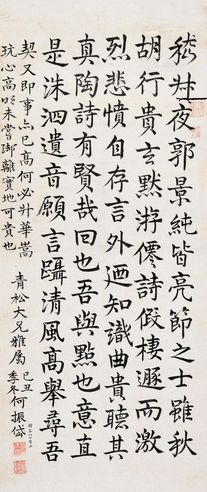 嵇叔夜郭景純皆亮節之士雖秋
胡行貴玄默游僊詩假棲遯而激
烈悲憤自存言外迺知識曲貴聽其
真陶詩有賢哉回也吾與點也意直
是洙泗遺音願言躡清風高舉尋吾
契又即事亦已高何必升華嵩
玩心高明未嘗腳離實地可貴也
青松大兄雅屬
己丑
季冬何振岱